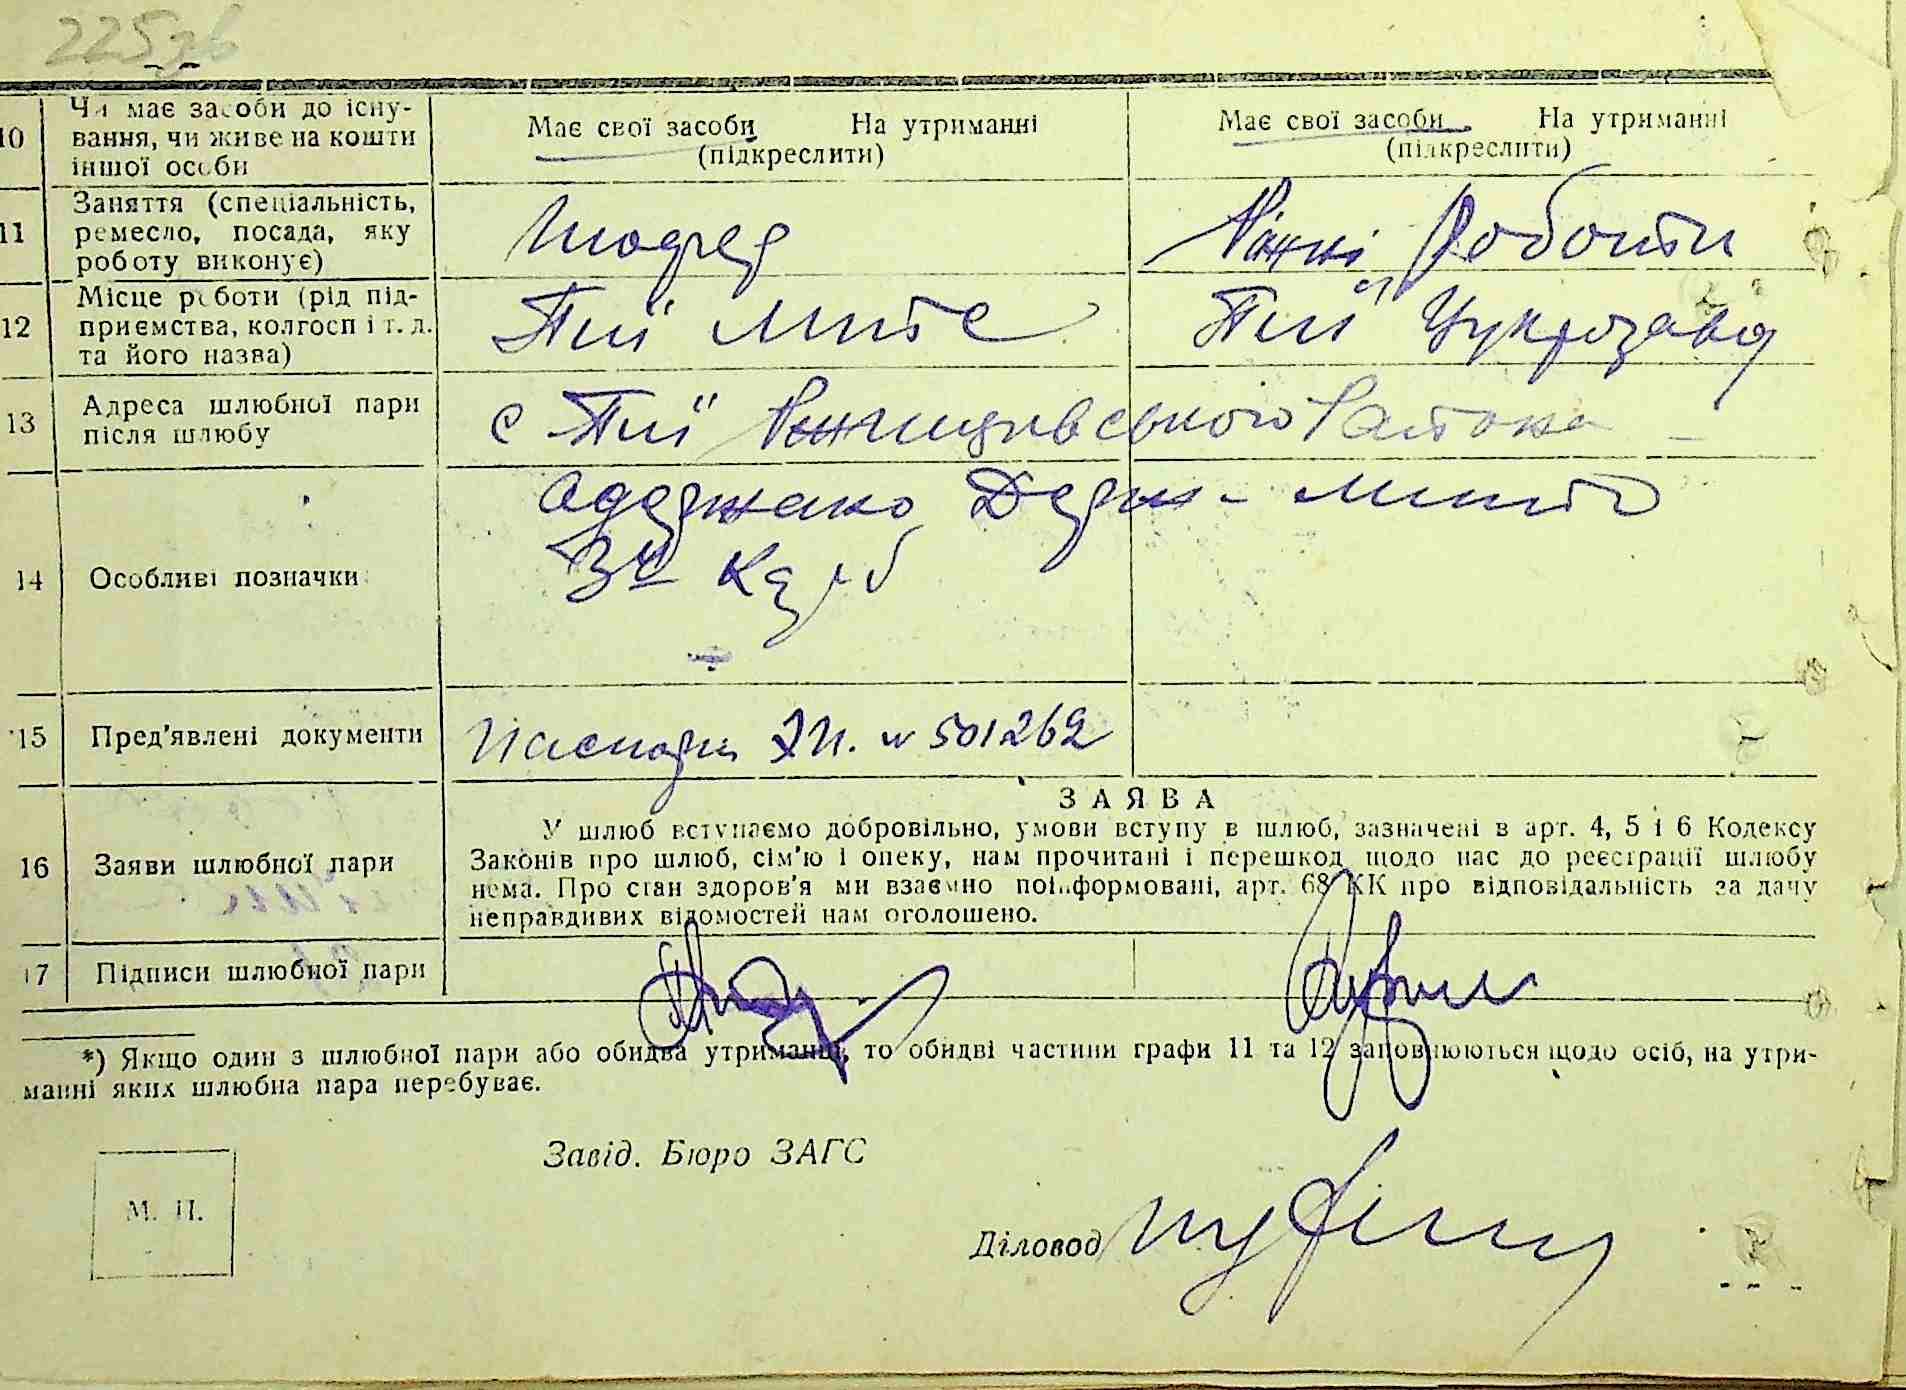 225зв
10 Чи має засоби до існу-
вання, чи живе на кошти
іншої особи
Має свої засоби На утриманні
(підкреслити)
Має свої засоби На утриманні
(підкреслити)
11 Заняття (спеціальність,
ремесло, посада, яку
роботу виконує)
Шофер
Ріжні Роботи
12 Місце роботи (рід під-
приємства, колгосп і т. д.
та його назва)
Тиї
Тиї Цукрозавод
13 Адреса шлюбної пари
після шлюбу
с Тиї
14 Особливі позначки
Одержано Держ-мито
3 крб
15 Пред'явлені документи
Паспорт № 501262
16 Заяви шлюбної пари
ЗАЯВА
У шлюб вступаємо добровільно, умови вступу в шлюб, зазначені в арт. 4, 5 і 6 Кодексу
Законів про шлюб, сім'ю і опеку, нам прочитані і перешкод щодо нас до реєстрації шлюбу
нема. Про стан здоров'я ми взаємно поінформовані, арт. 68 КК про відповідальність за дачу
неправдивих відомостей нам оголошено.
17 Підписи шлюбної пари
*) Якщо один з шлюбної пари або обидва утриманці, то обидві частини графи 11 та 12 заповнюються щодо осіб, на утри-
манні яких шлюбна пара перебуває.
Завід. Бюро ЗАГС
М. П.
Діловод